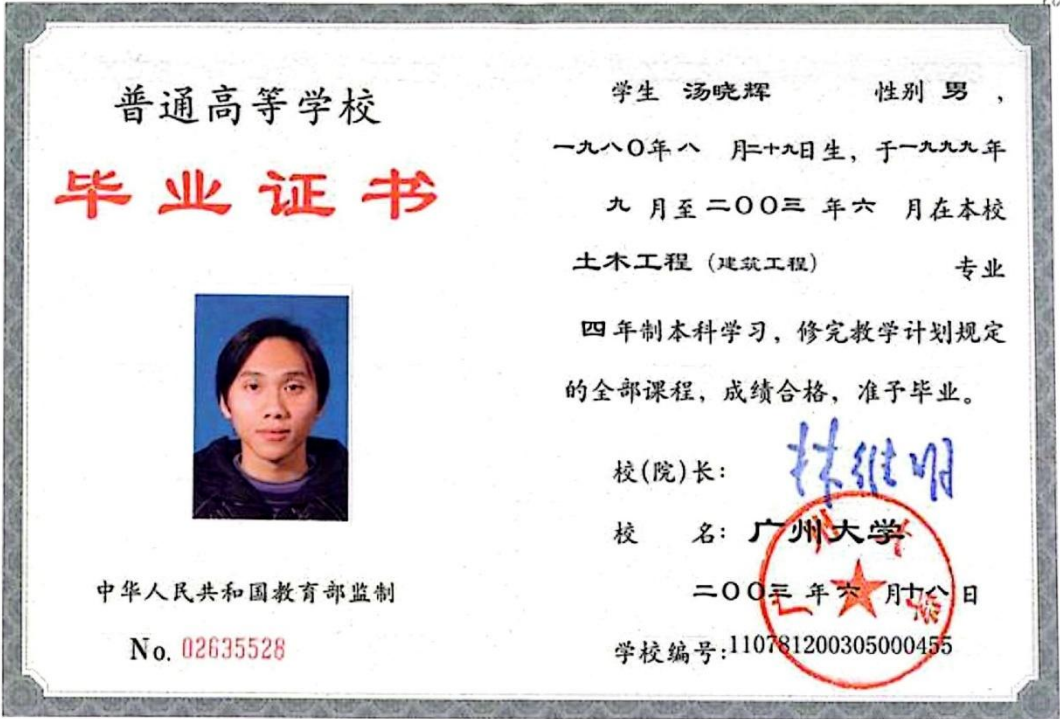 普通高等学校
毕业证书
中华人民共和国教育部监制
No. 02635528
学生 汤晓辉 性别 男 ，
一九八〇年八 月二十九日生，于一九九九年
九 月至二〇〇三 年六 月在本校
土木工程（建筑工程） 专业
四年制本科学习，修完教学计划规定
的全部课程，成绩合格，准予毕业。
校(院)长： 林维明
校 名：广州大学
二〇〇三 年六 月十八日
学校编号:110781200305000455
广州大学